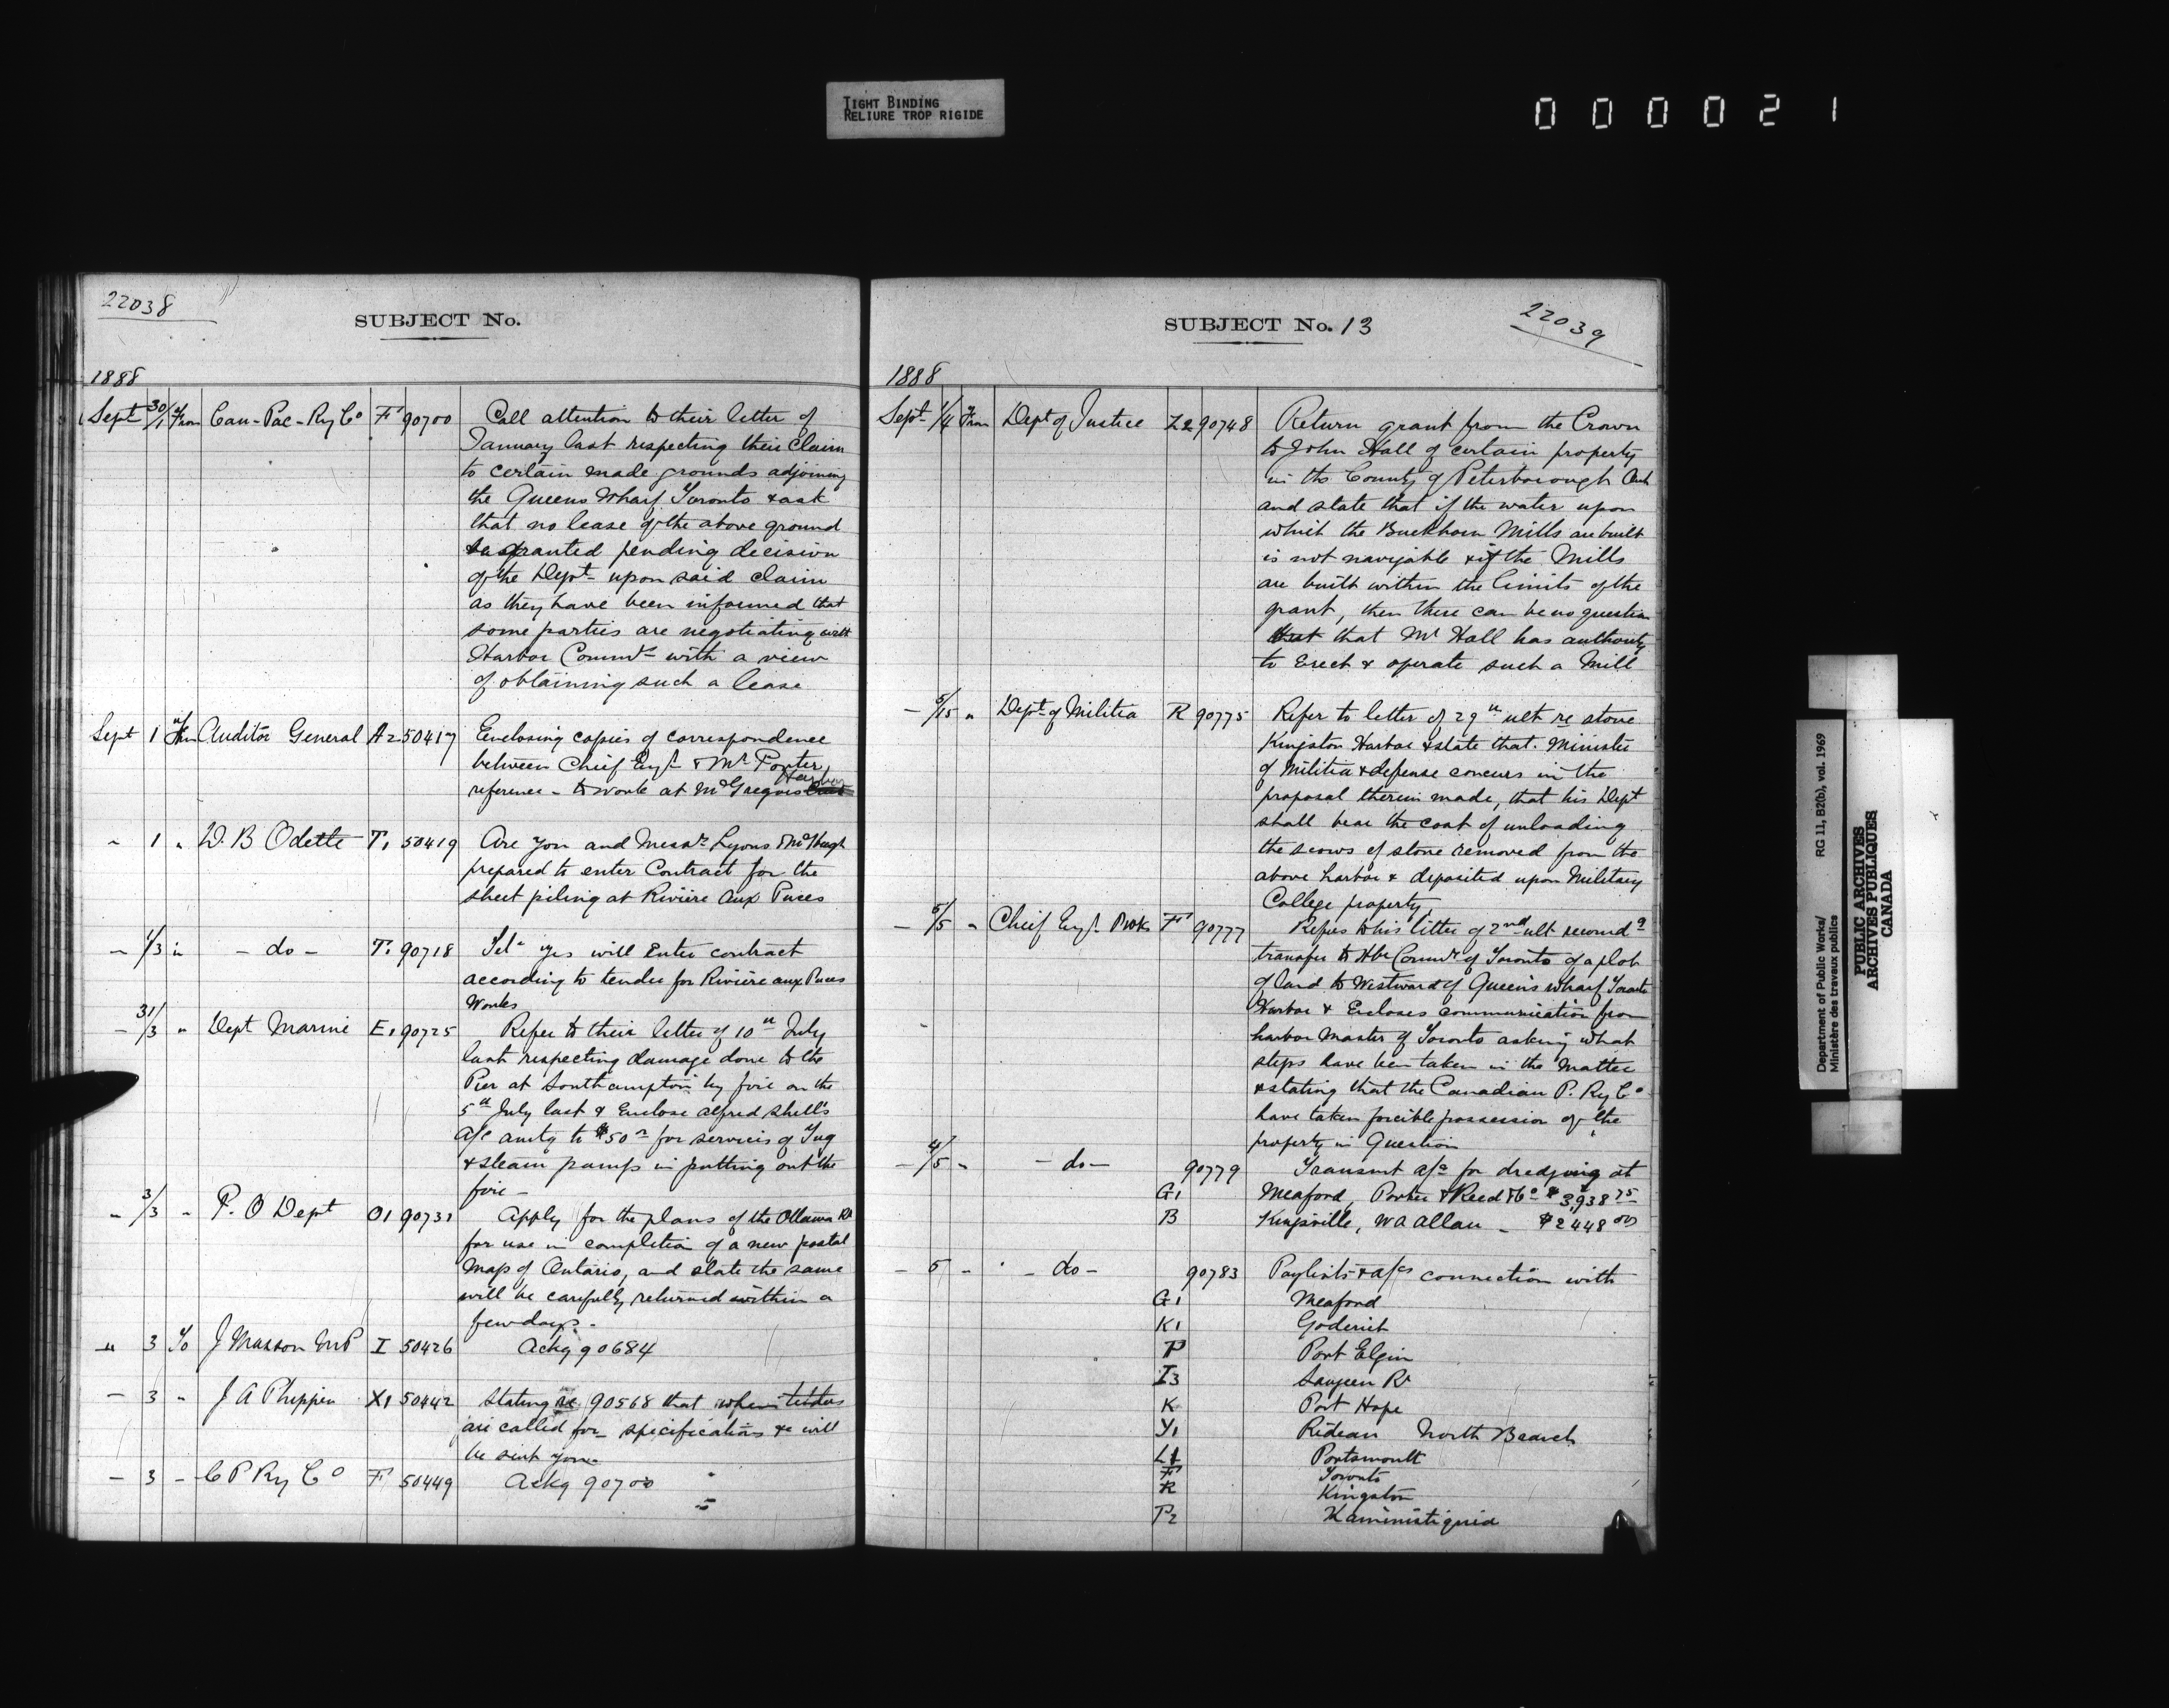 TIGHT BINDING
RELIURE TROP RIGIDE
000021
22038
SUBJECT No.
1888
Sept 30/1 From Can-Pac-Ry Co F 90700 Call attention to their letter of
January last respecting their claim
to certain made grounds adjoining
the Queens Wharf Toronto & ask
that no lease of the above ground
be granted pending decision
of the Dept upon said claim
as they have been informed that
some parties are negotiating with
Harbor Commrs with a view
of obtaining such a lease
Sept 1 Auditor General A2 50417 Enclosing copies of correspondence
between Chief Engr & Mr Porter
reference - to work at McGregors Harbor
" 1 " W. B Odette T1 50419 Are you and Messrs Lyons & McHugh
prepared to enter Contract for the
sheet piling at Rivière Aux Puces
- 1/3 in - do - T1 90718 Tel- yes will Enter contract
according to tender for Rivière aux Puces
Works
- 31/3 " Dept Marine E1 90725 Refer to their letter of 10th July
last respecting damage done to the
Pier at Southampton by fire on the
5th July last & Enclose alfred Shell's
a/c amtg to $50 for services of Tug
& steam pump in putting out the
fire -
" 3/3 " P. O Dept O1 90731 Apply for the plans of the Ottawa Rr
for use in completion of a new postal
Map of Ontario, and state the same
will be carefully returned within a
few days -
" 3 To J Masson MP I 50426 Ackg 90684
- 3 - J A Phippen X1 50442 Stating re 90568 that when tenders
are called for - specifications &c will
be sent you
- 3 - C P Ry Co F 50449 Ackg 90700
SUBJECT No. 13
22039
1888
Sept 1/4 From Dept of Justice Z2 90748 Return grant from the Crown
to John Hall of certain property
in the County of Peterborough Ont
and state that if the water upon
which the Buckhorn Mills are built
is not navigable & if the Mills
are built within the limits of the
grant, then there can be no question
that Mr Hall has authority
to Erect & operate such a Mill
- 5/15 " Dept of Militia R 90775 Refer to letter of 29th ult re stone
Kingston Harbor & state that Minister
of Militia & defense concurs in the
proposal therein made, that his Dept
shall bear the cost of unloading
the scows of stone removed from the
above harbor & deposited upon Military
College property
- 5/5 " Chief Engr P Wks F 90777 Refers to his letter of 2nd ult recomdg
transfer to Hbr Commrs of Toronto of a plot
of land to Westward of Queen's wharf Toronto
Harbor & Encloses communication from
harbor Master of Toronto asking what
steps have been taken in the Matter
& stating that the Canadian P. Ry Co
have taken forcible possession of the
property in Question
- 4/5 - - do - 90779 Transmt a/cs for dredging at
G1 Meaford, Porter & Reed & Co $3,938 75
B Kingsville, W A Allan - $2448 00
- 5 - - do - 90783 Paylists & a/cs connection with
G1 Meaford
K1 Goderich
P Port Elgin
I3 Saugeen Rr
K Port Hope
Y1 Rideau North Branch
L1 Portsmouth
F Toronto
R Kingston
P2 Kaministiquia
Department of Public Works/ RG 11, B2(b), vol. 1969
Ministère des travaux publics
PUBLIC ARCHIVES
ARCHIVES PUBLIQUES
CANADA